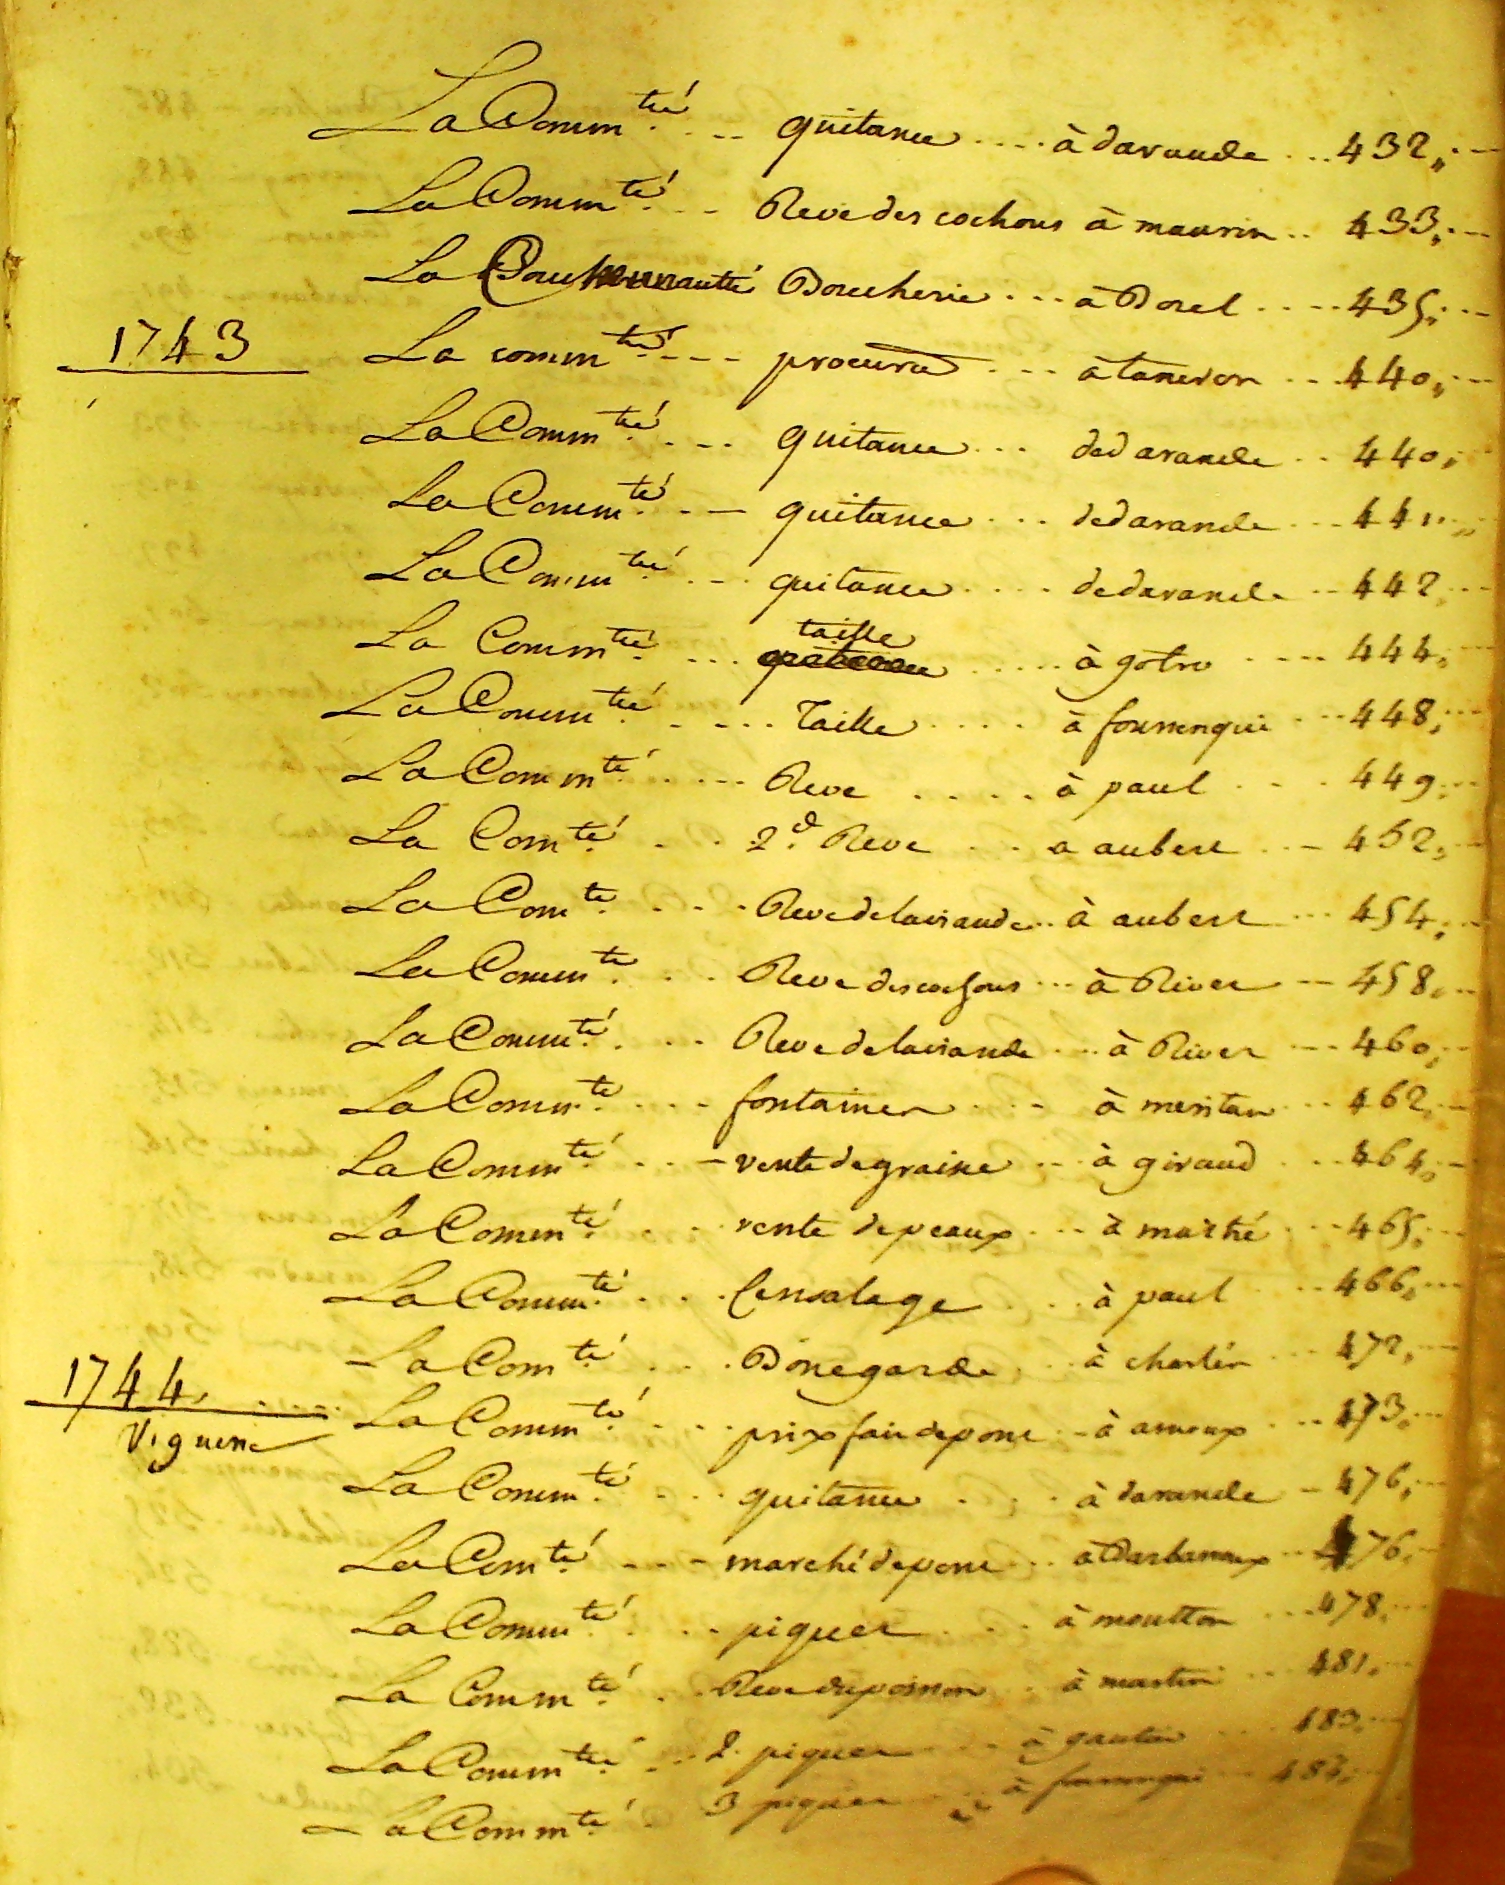 La Comm.té quitance à davande 432
La Comm.té Reve des cochons à maurin 433
La Communautté Boucherie à Borel 435
1743 La comm.té procure à taneron 440
La Comm.té quitance de davande 440
La Comm.té quitance de davande 441
La Comm.té quitance de davande 442
La Comm.té taille à gotro 444
La Comm.té Taille à fournenqui 448
La Comm.té Reve à paul 449
La Com.té 2.e Reve a aubert 452
La Com.te Reve de la viande à aubert 454
La Comm.te Reve des cochons à River 458
La Comm.té Reve de la viande à River 460
La Comm.te fontainer à meritan 462
La Comm.té vente de graine à giraud 464
La Comm.té vente de peaux à mathé 465
La Comm.té Censalage à paul 466
La Com.té Bonegarde à charlèn 472
1744 La Comm.té prix fait de pont à arnoux 473
Viguerie
La Comm.té quitance à davande 476
La Com.té marché de pont à Barbaroux 476
La Comm.té piquet à moutton 478
La Comm.té Reve du poisson à martin 481
La Comm.té 2. piquet à gautier 483
La Comm.té 3 piquet à fournenqui